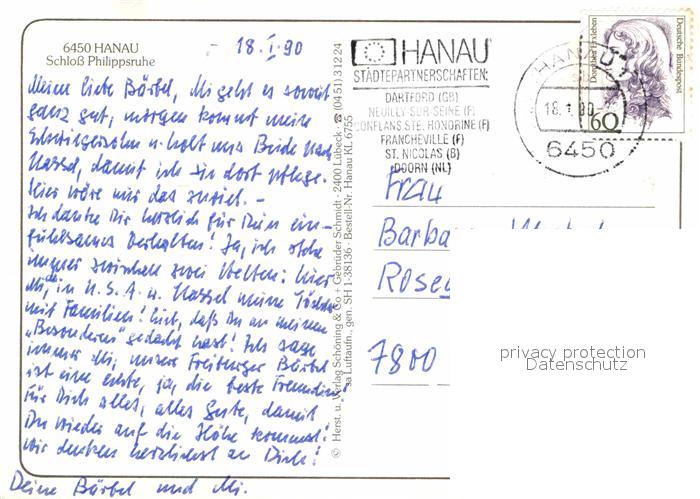 6450 HANAU
Schloß Philippsruhe
18.I.90
Meine liebe Bärbel, Mi geht es soweit
ganz gut, morgen kommt meine
Schwiegersohn u. holt uns Beide nach
Kassel, damit ich sie dort pflege.
Hier wäre mir das zuviel. –
Ich danke Dir herzlich für Dein ein-
fühlsames Verhalten! Ja, ich stehe
immer zwischen zwei Welten: hier
Mi, in U.S.A. u. Kassel meine Töchter
mit Familien! Lieb, daß Du an meinen
„Besonderen" gedacht hast! Ich sage
immer Mi, unsere Freiburger Bärbel
ist eine echte, ja, die beste Freundin
Für Dich alles, alles Gute, damit
Du wieder auf die Höhe kommst!
Wir denken herzlichst an Dich!
Deine Bärbel und Mi.
© Herst. u. Verlag Schöning & Co + Gebrüder Schmidt · 2400 Lübeck · ☎ (0451) 31224
Luftaufn., gen. SH 1-38136 · Bestell-Nr. Hanau KL 6755
HANAU
STÄDTEPARTNERSCHAFTEN:
DARTFORD (GB)
NEUILLY-SUR-SEINE (F)
CONFLANS STE. HONORINE (F)
FRANCHEVILLE (F)
ST. NICOLAS (B)
DOORN (NL)
HANAU 1
18.1.90
6450
Dorothea Erxleben
Deutsche Bundespost
60
Frau
Barba
Rose
7800
privacy protection
Datenschutz